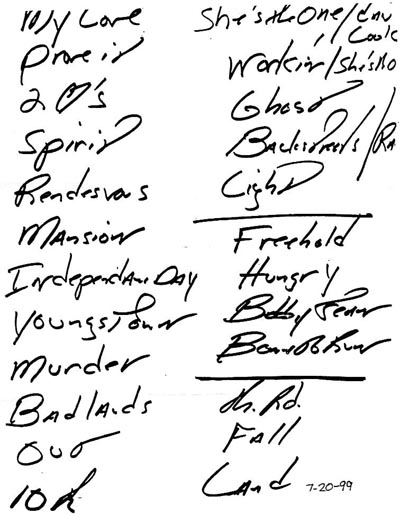 My Love
Prove it
2 O's
Spirit
Rendesvous
Mansion
Independance Day
Youngstown
Murder
Badlands
Out
10th
She's the One / 
Workin / She's the O
Ghost
Backstreets / RA
Light
Freehold
Hungry
Bobby Jean
Born to Run
Th. Rd.
Fall
Land 7-20-99